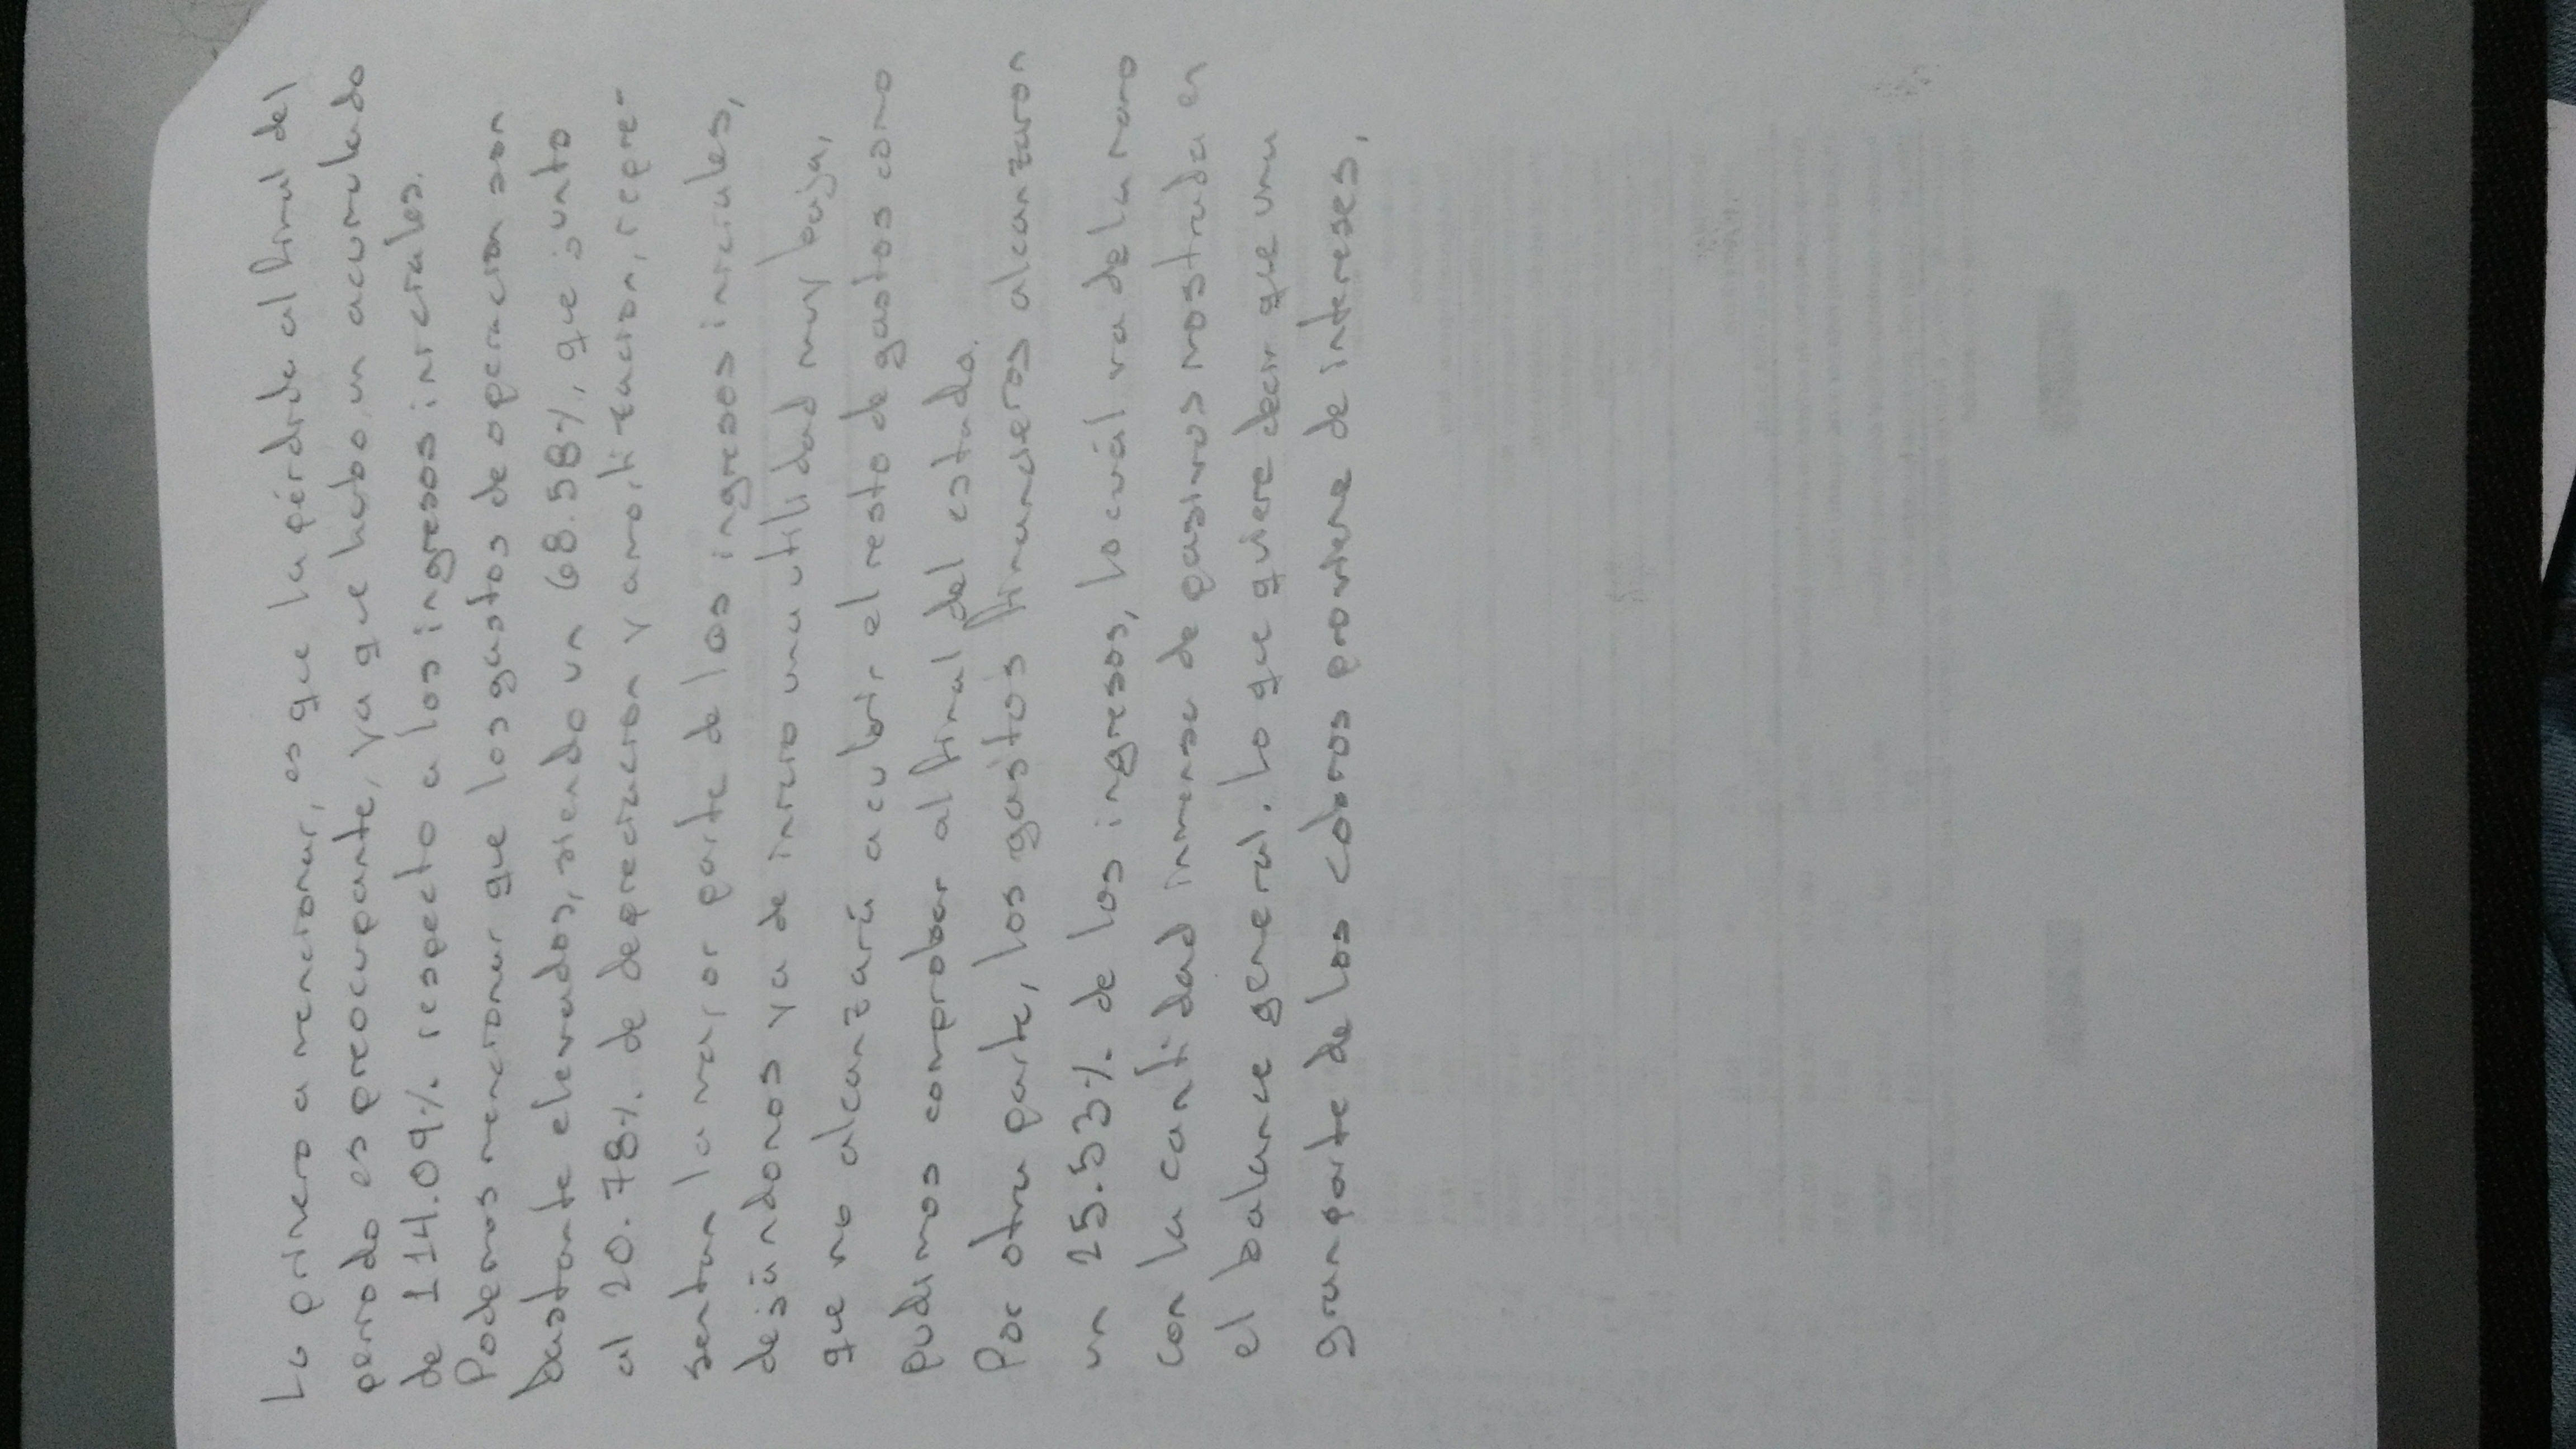 Lo primero a mencionar, es que la pérdida al final del
periodo es preocupante, ya que hubo un acumulado
de 114.09% respecto a los ingresos iniciales.
Podemos mencionar que los gastos de operación son
bastante elevados, siendo un 68.58%, que junto
al 20.78% de depreciacion y amortizacion, repre-
sentan la mayor parte de los ingresos iniciales,
dejándonos ya de inicio una utilidad muy baja,
que no alcanzará a cubrir el resto de gastos como
pudimos comprobar al final del estado.
Por otra parte, los gastos financieros alcanzaron
un 25.53% de los ingresos, lo cuál va de la mano
con la cantidad inmensa de pasivos mostrada en
el balance general. Lo que quiere decir que una
gran parte de los cobros proviene de intereses.